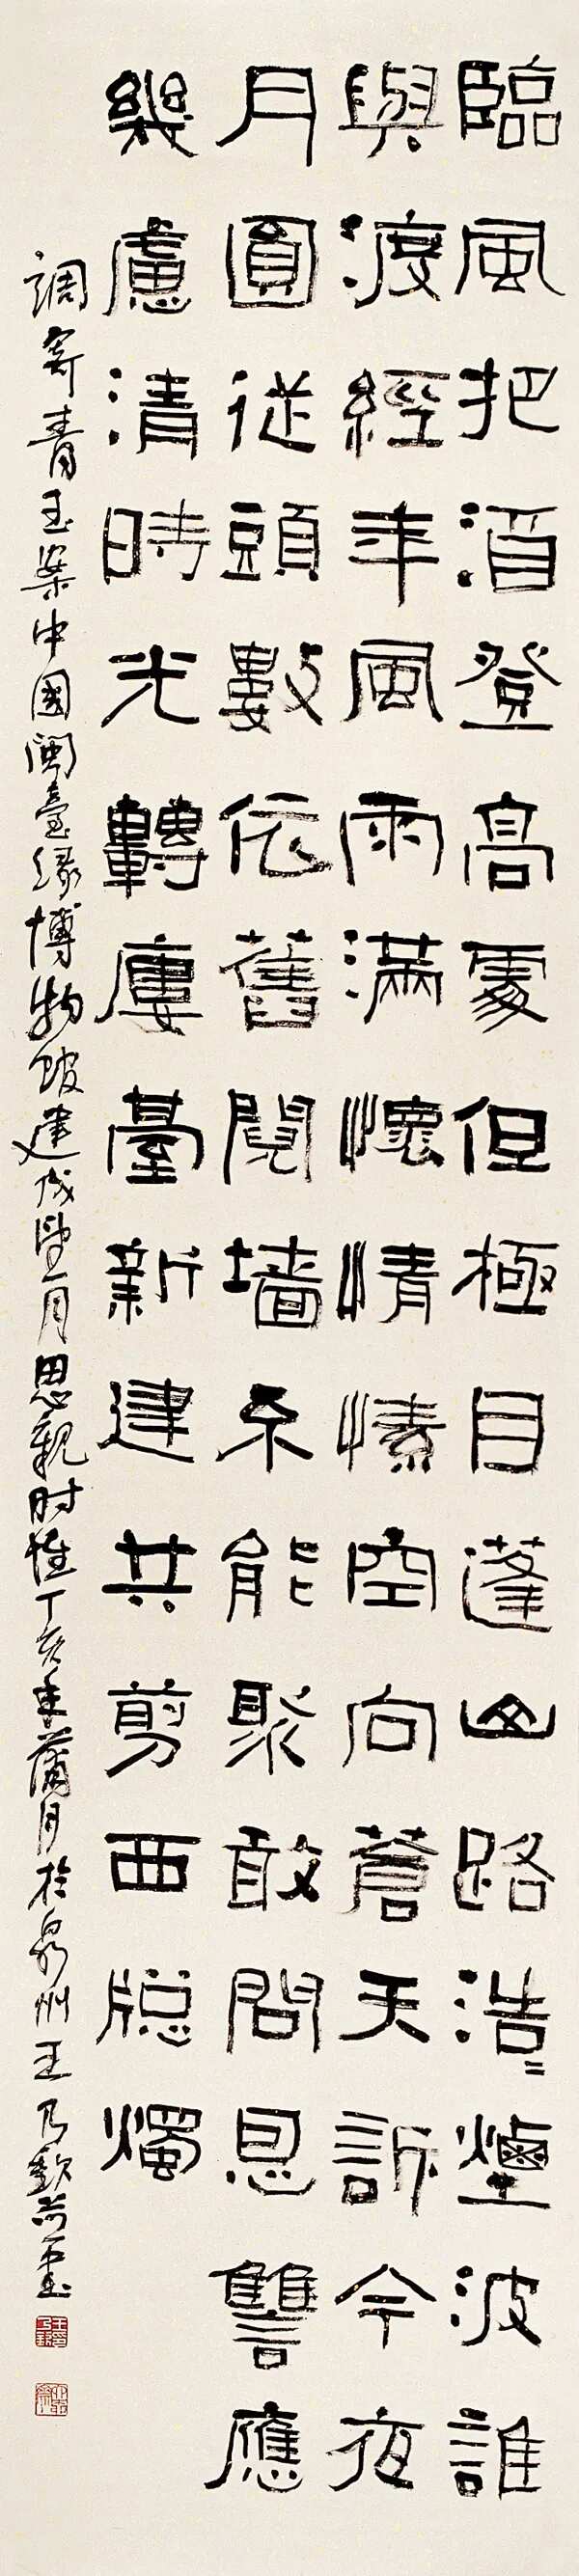 臨風把酒登高處但極目蓬山路浩〻煙波誰
與渡經年風雨滿懷情愫空向蒼天訴今夜
月圓從頭數依舊鬩墻不能聚敢問恩讐應
幾慮清時光轉廔臺新建共剪西牕燭
調寄青玉案中國閩臺緣博物館建成望月思親時惟丁亥年蒲月於泉州王乃欽並書